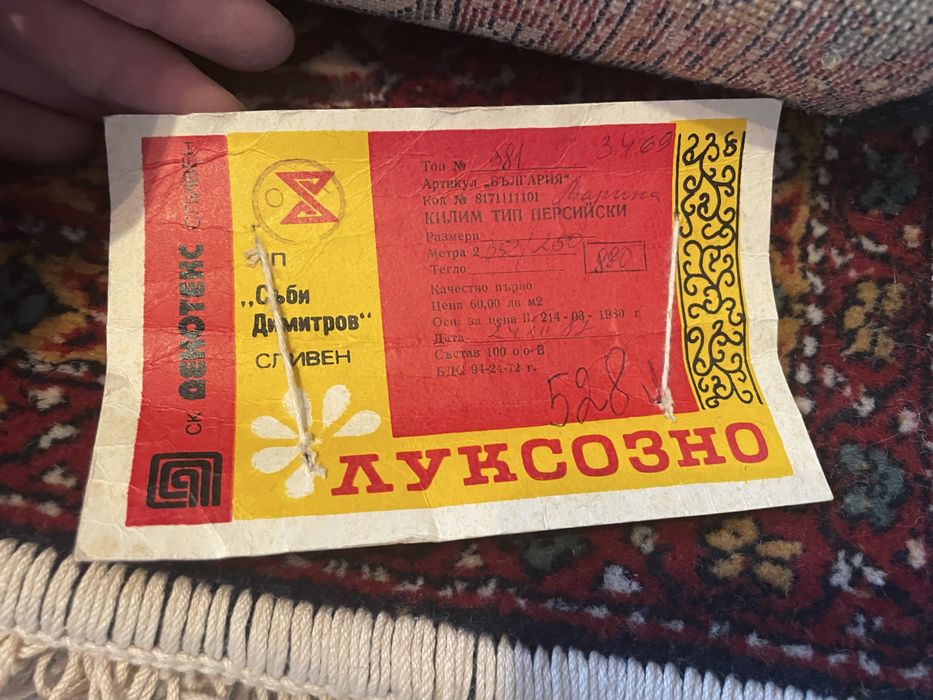 СК ДЕКОТЕКС СЛИВЕН
ПП
„Съби
Димитров“
СЛИВЕН
Топ № 381 3469
Артикул „БЪЛГАРИЯ“
Код № 8171111101 Марина
КИЛИМ ТИП ПЕРСИЙСКИ
Размери
Метра 2 352/250
Тегло 880
Качество първо
Цена 60,00 лв м2
Осн. за цена П. 214-03-1980 г
Дата 24 XII 87
Състав 100 о о-В
БДС 94-24-72 г.
528
ЛУКСОЗНО